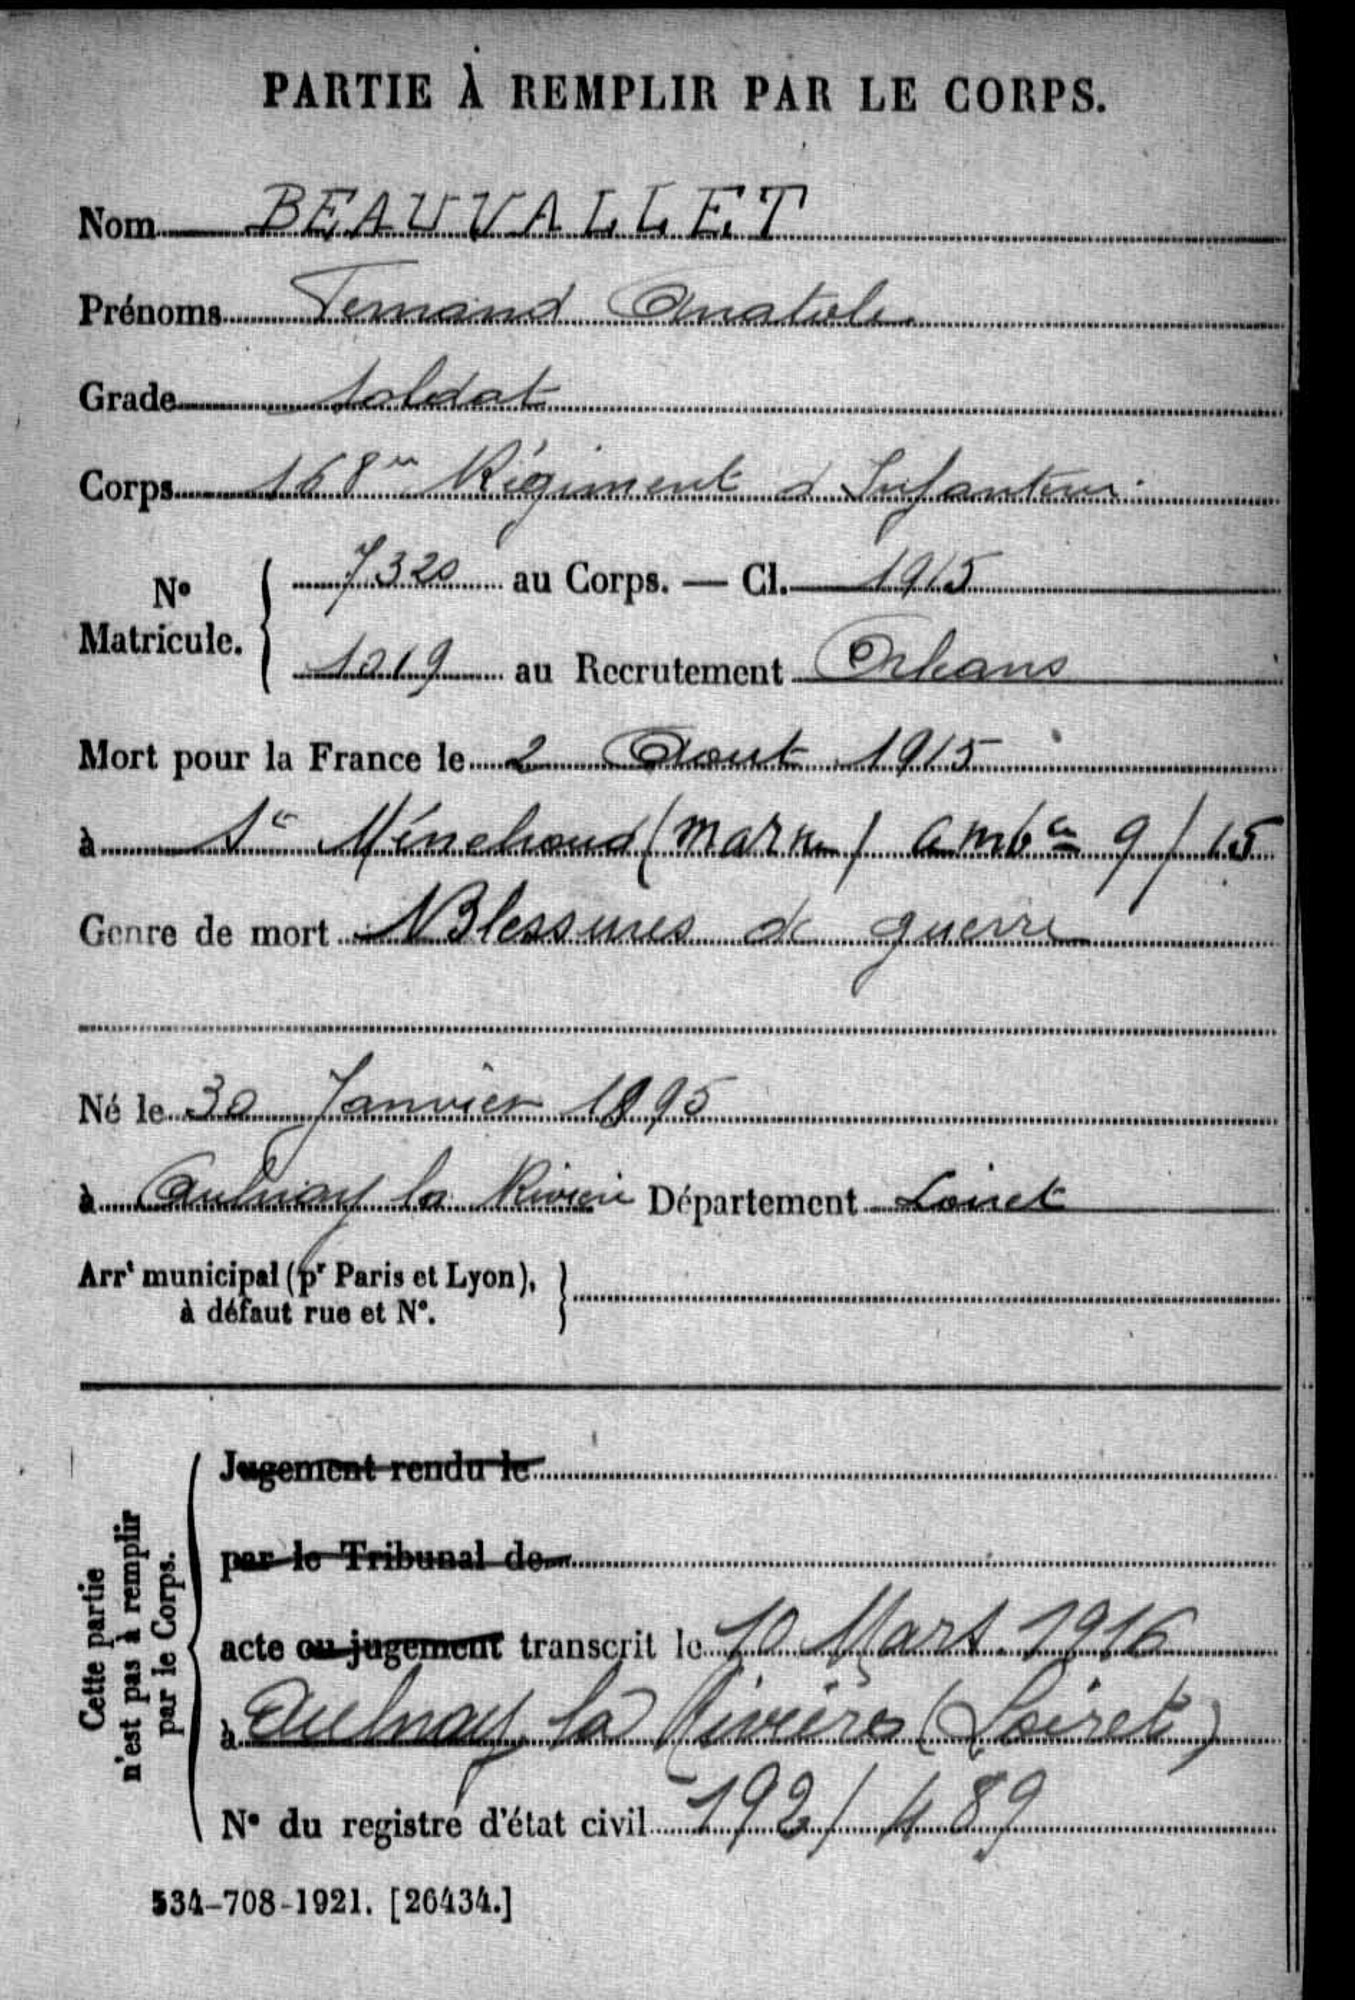 PARTIE À REMPLIR PAR LE CORPS.
Nom BEAUVALLET
Prénoms Fernand Anatole
Grade Soldat
Corps 168e Régiment d'Infanterie
No Matricule. 7320 au Corps. — Cl. 1915
1019 au Recrutement Orléans
Mort pour la France le 2 Aout 1915
à Ste Ménehould (Marne) ambce 9/15
Genre de mort Blessures de guerre
Né le 30 Janvier 1895
à Aulnay la Rivière Département Loiret
Arrt municipal (pr Paris et Lyon),
à défaut rue et No.
Cette partie n'est pas à remplir par le Corps.
Jugement rendu le
par le Tribunal de
acte ou jugement transcrit le 10 Mars 1916
à Aulnay la Rivière (Loiret)
No du registre d'état civil 192/489
534-708-1921. [26434.]